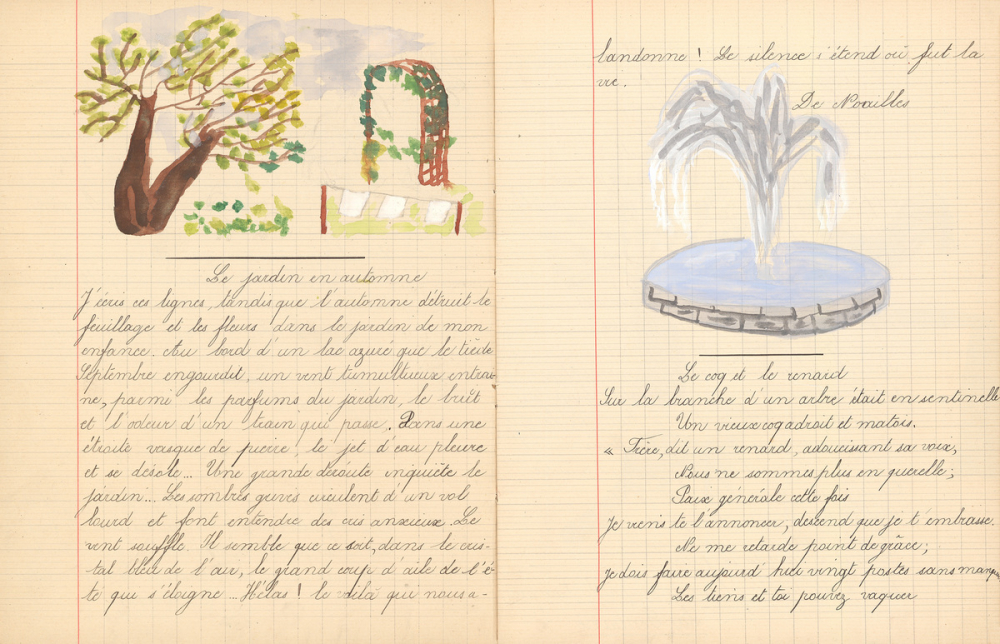 Le jardin en automne
J'écris ces lignes, tandis que l'automne détruit le
feuillage et les fleurs dans le jardin de mon
enfance. Au bord d'un lac azuré que le tiède
Septembre engourdit, un vent tumultueux entraî-
ne, parmi les parfums du jardin, le bruit
et l'odeur d'un train qui passe. Dans une
étroite vasque de pierre, le jet d'eau pleure
et se désole... Une grande déroute inquiète le
jardin... Les sombres geais circulent d'un vol
lourd et font entendre des cris anxieux. Le
vent souffle. Il semble que ce soit, dans le cris-
tal bleu de l'air, le grand coup d'aile de l'é-
té qui s'éloigne... Hélas ! le voilà qui nous a-
bandonne ! Le silence s'étend où fut la
vie.
De Noailles
Le coq et le renard
Sur la branche d'un arbre était en sentinelle
Un vieux coq adroit et matois.
« Frère, dit un renard, adoucissant sa voix,
Nous ne sommes plus en querelle ;
Paix générale cette fois
Je viens te l'annoncer, descend que je t'embrasse.
Ne me retarde point de grâce ;
Je dois faire aujourd'hui vingt postes sans manquer
Les tiens et toi pouvez vaquer